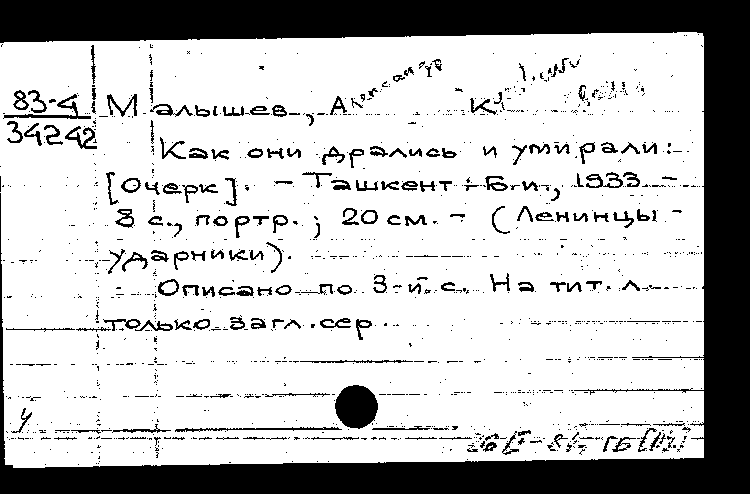 83-4
34242
Малышев, Александр К
Как они дрались и умирали:
[Очерк]. - Ташкент: Б.и., 1933 -
8 с., портр.; 20 см. - (Ленинцы -
ударники).
Описано по 3-й с. На тит. л.
только загл. сер.